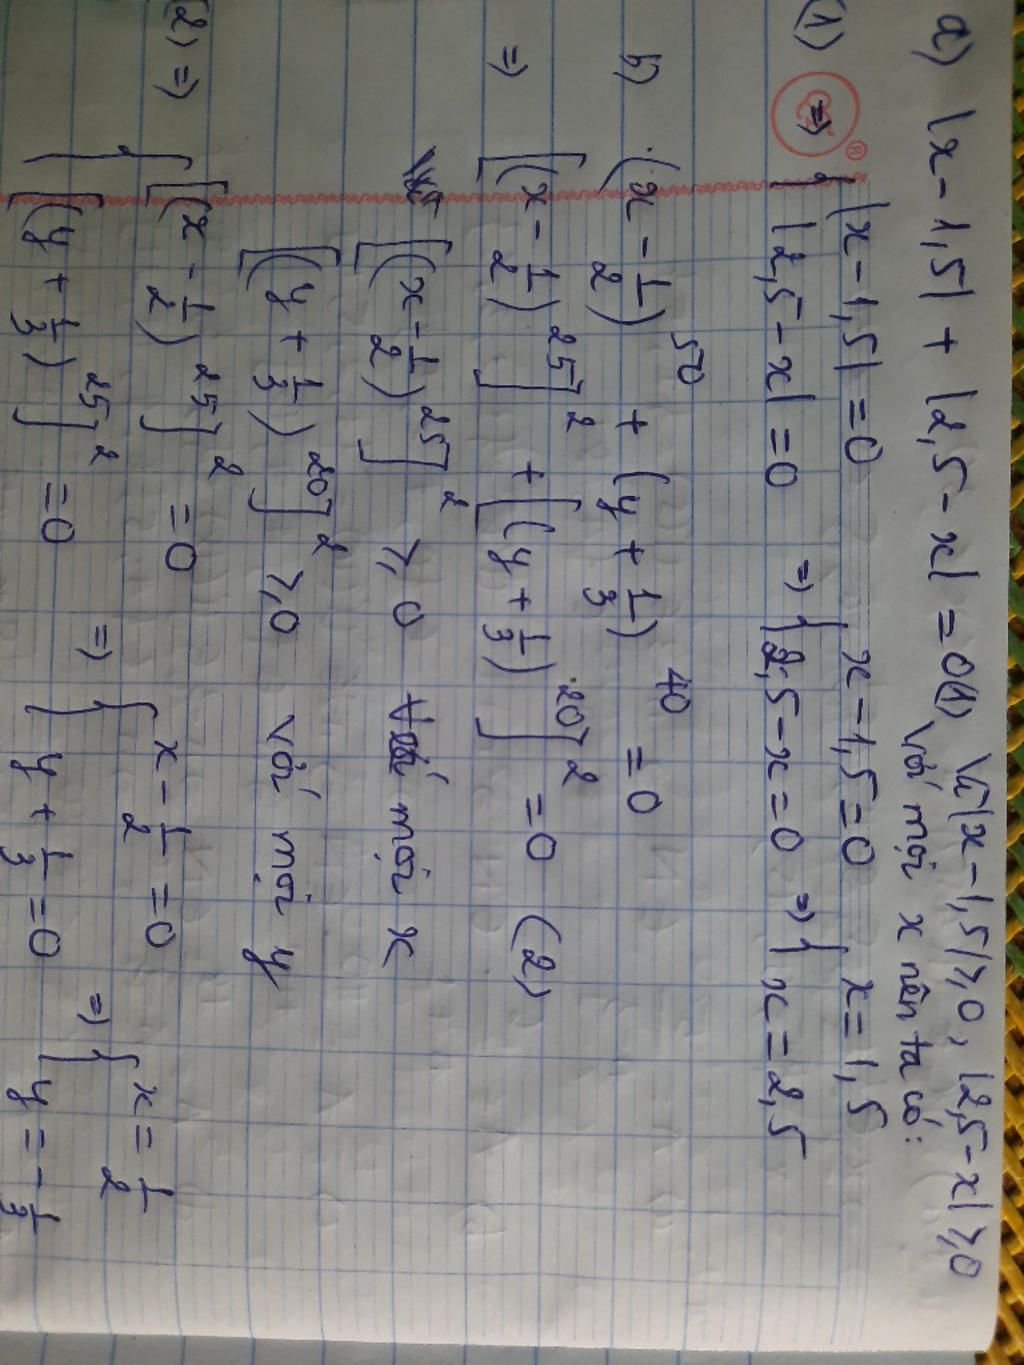 a) |x - 1,5| + |2,5 - x| = 0 (1) Vì |x - 1,5| ≥ 0, |2,5 - x| ≥ 0
với mọi x nên ta có:
(1) => { |x - 1,5| = 0 => { x - 1,5 = 0 => { x = 1,5
|2,5 - x| = 0 2,5 - x = 0 x = 2,5
b) (x - 1/2)^50 + (y + 1/3)^40 = 0
=> [(x - 1/2)^25]^2 + [(y + 1/3)^20]^2 = 0 (2)
[(x - 1/2)^25]^2 ≥ 0 với mọi x
[(y + 1/3)^20]^2 ≥ 0 với mọi y
(2) => { [(x - 1/2)^25]^2 = 0 => { x - 1/2 = 0 => { x = 1/2
[(y + 1/3)^25]^2 = 0 y + 1/3 = 0 y = -1/3